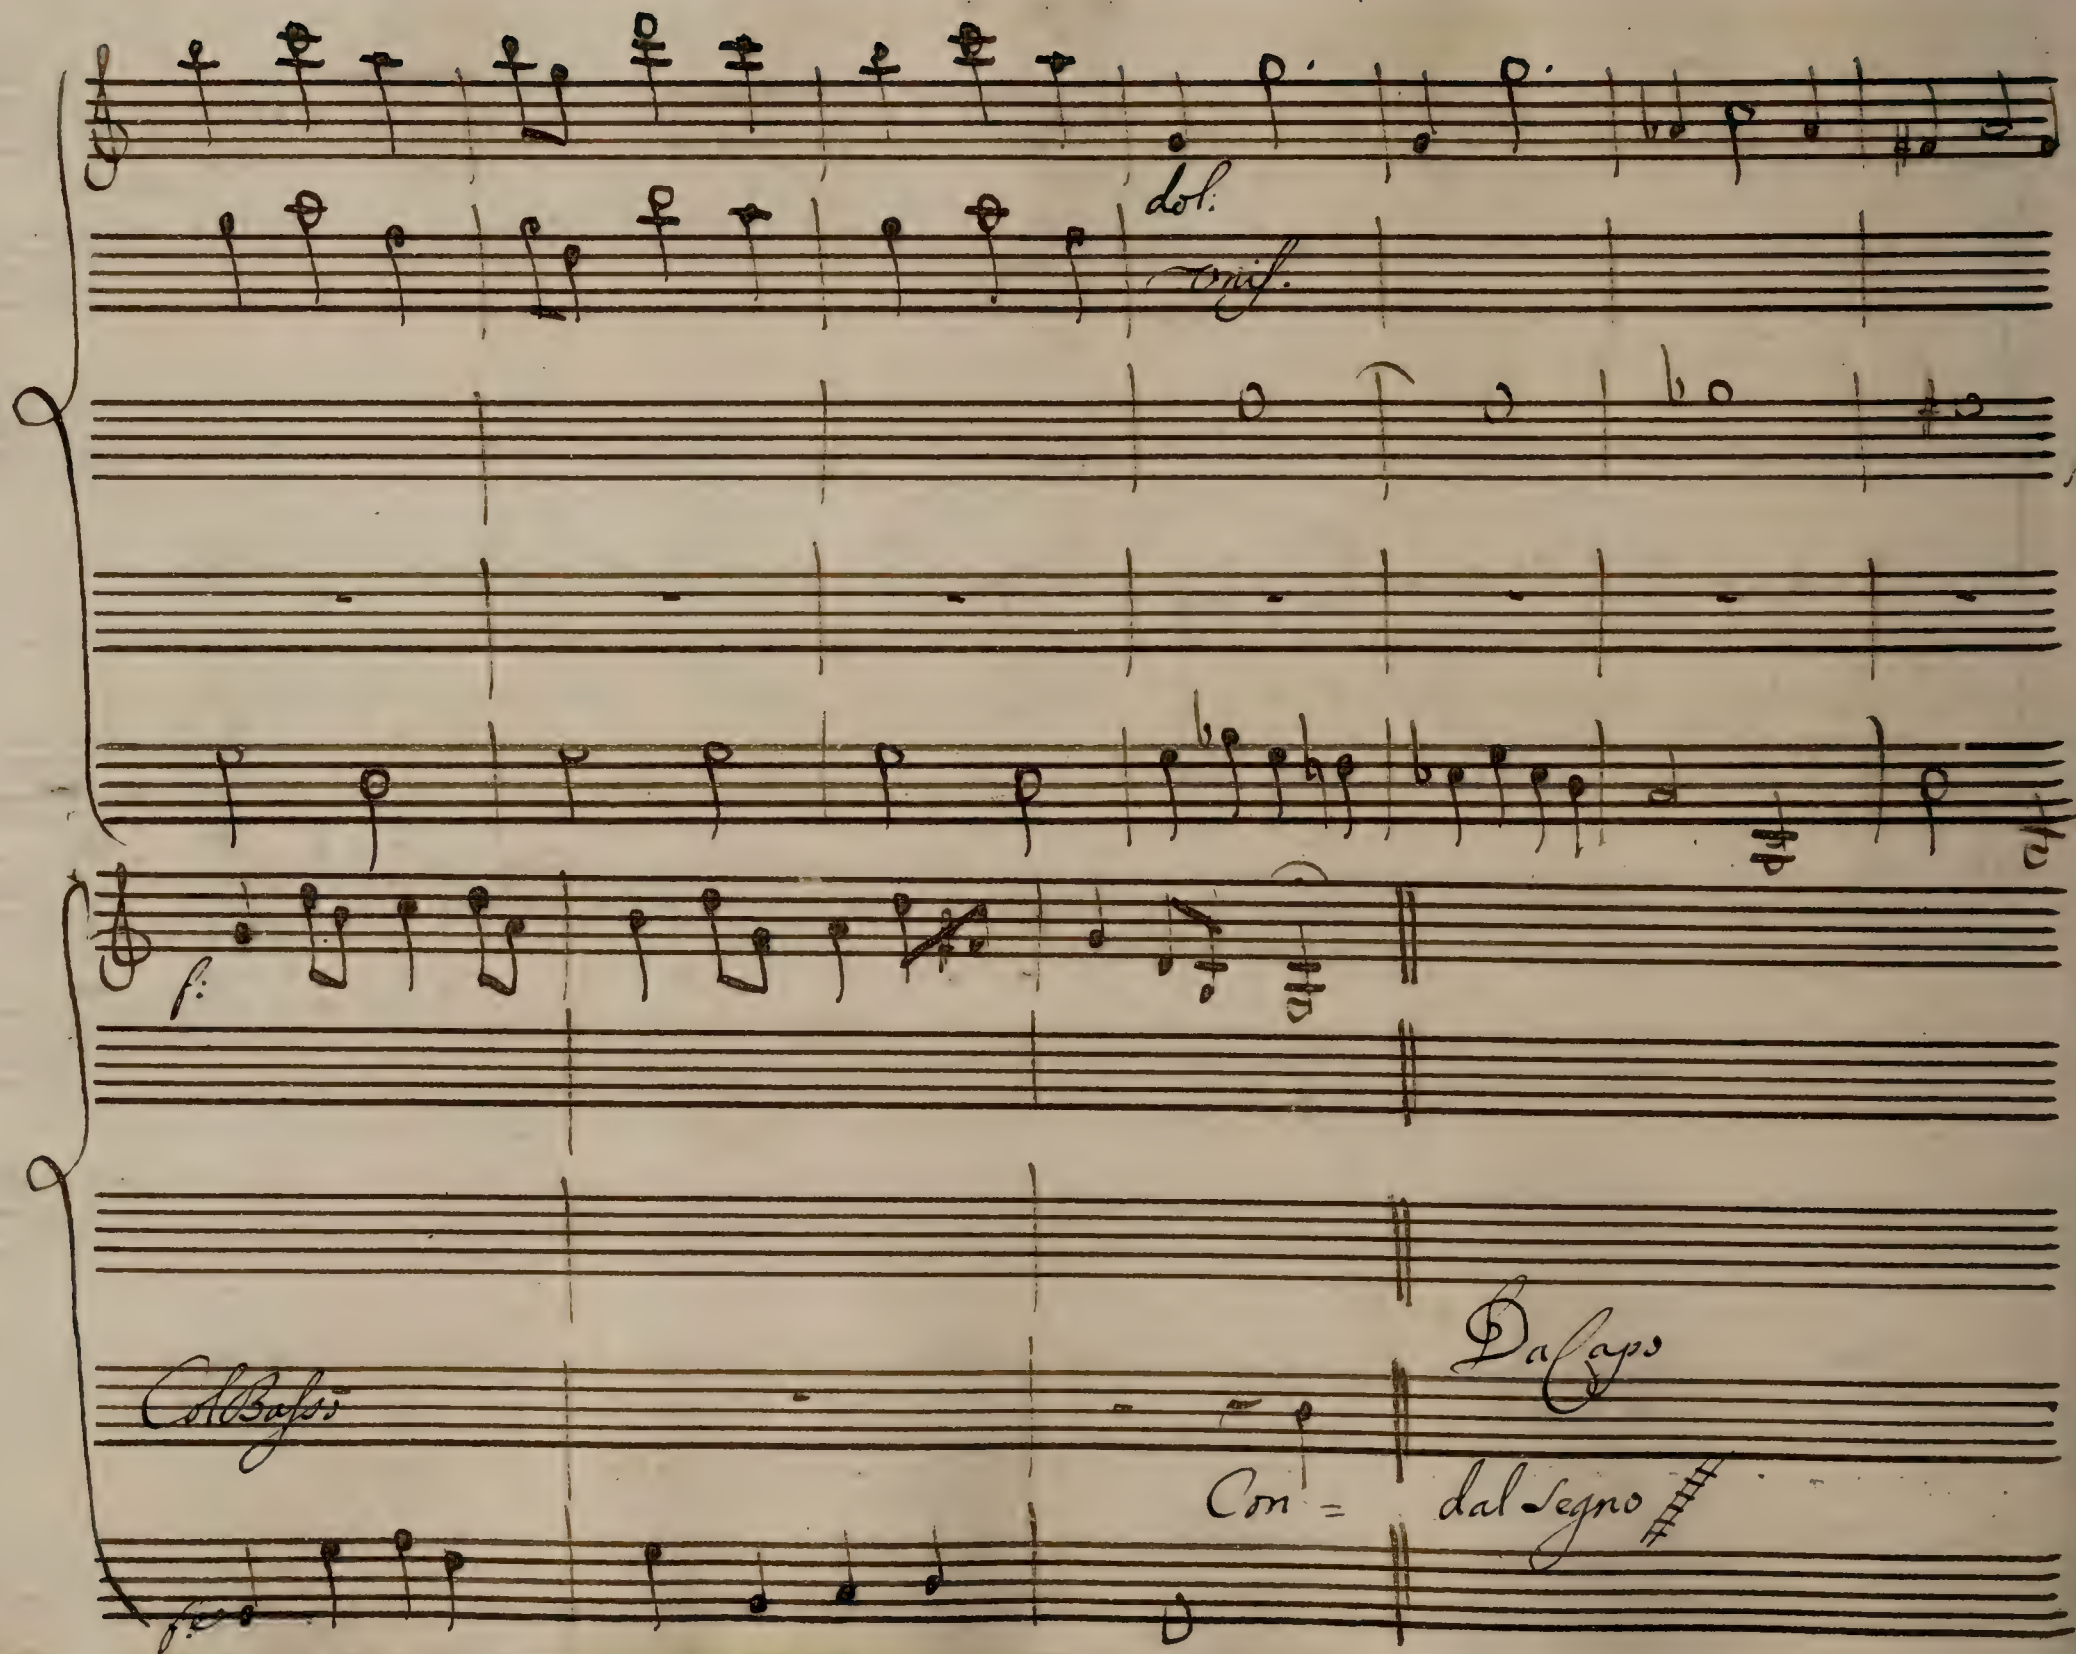 dol:
unis.
f:
Col Basso
Da Capo
Con = dal Segno
f: